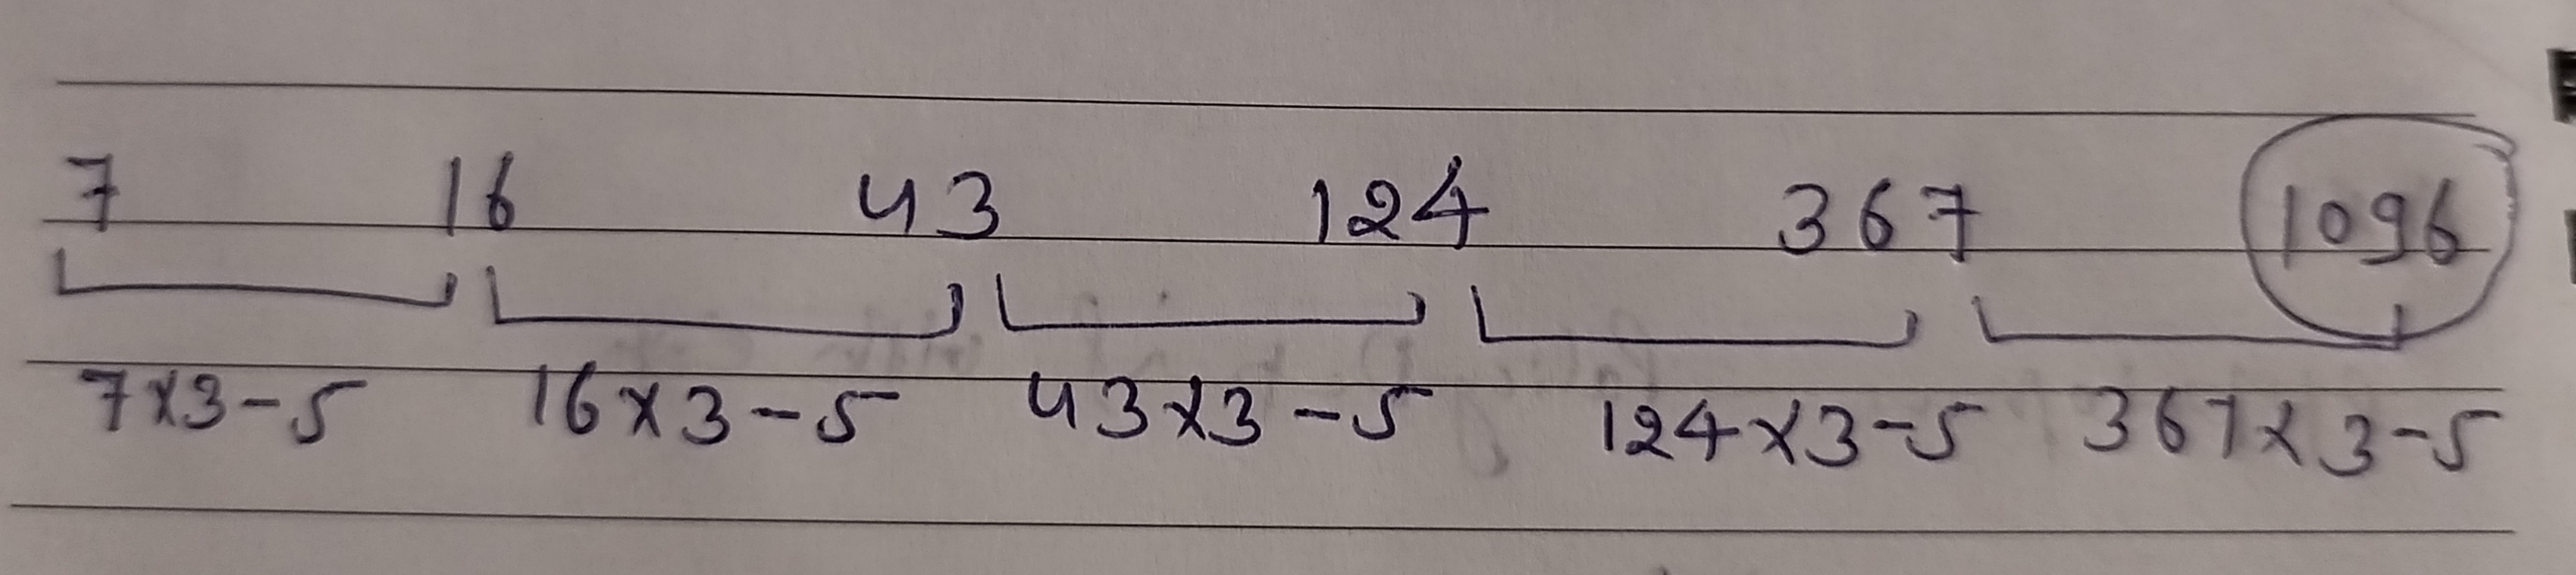 7 16 43 124 367 1096
7×3-5 16×3-5 43×3-5 124×3-5 367×3-5